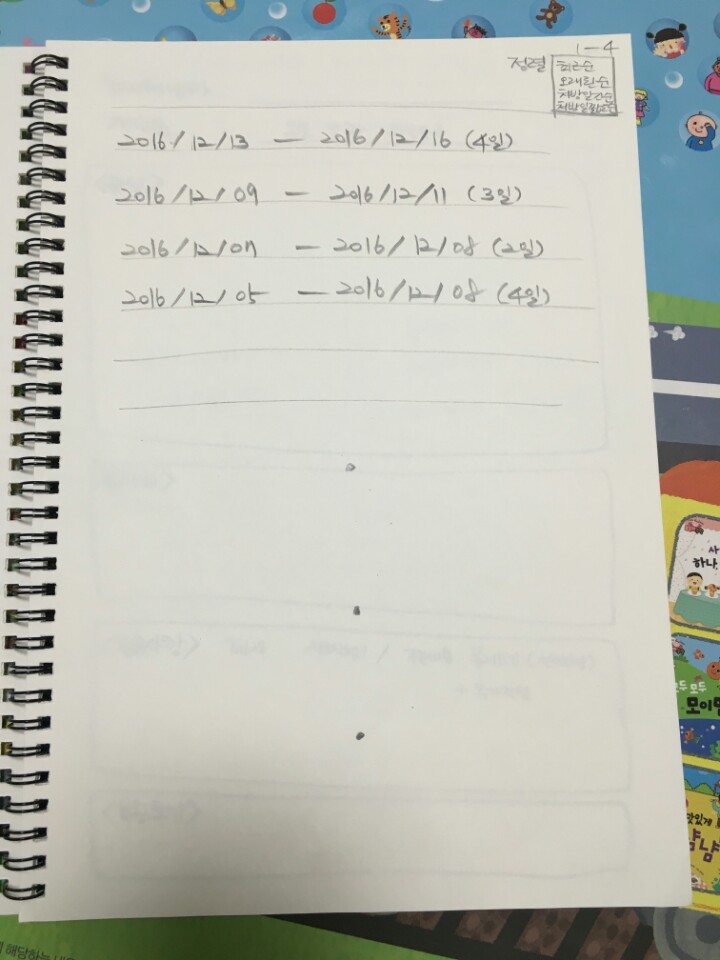 1-4
정렬
최근순
오래된순
처방일순
2016/12/13 — 2016/12/16 (4일)
2016/12/09 — 2016/12/11 (3일)
2016/12/07 — 2016/12/08 (2일)
2016/12/05 — 2016/12/08 (4일)
사
하나,
모두 모두
맛있게
냠냠
해당하는